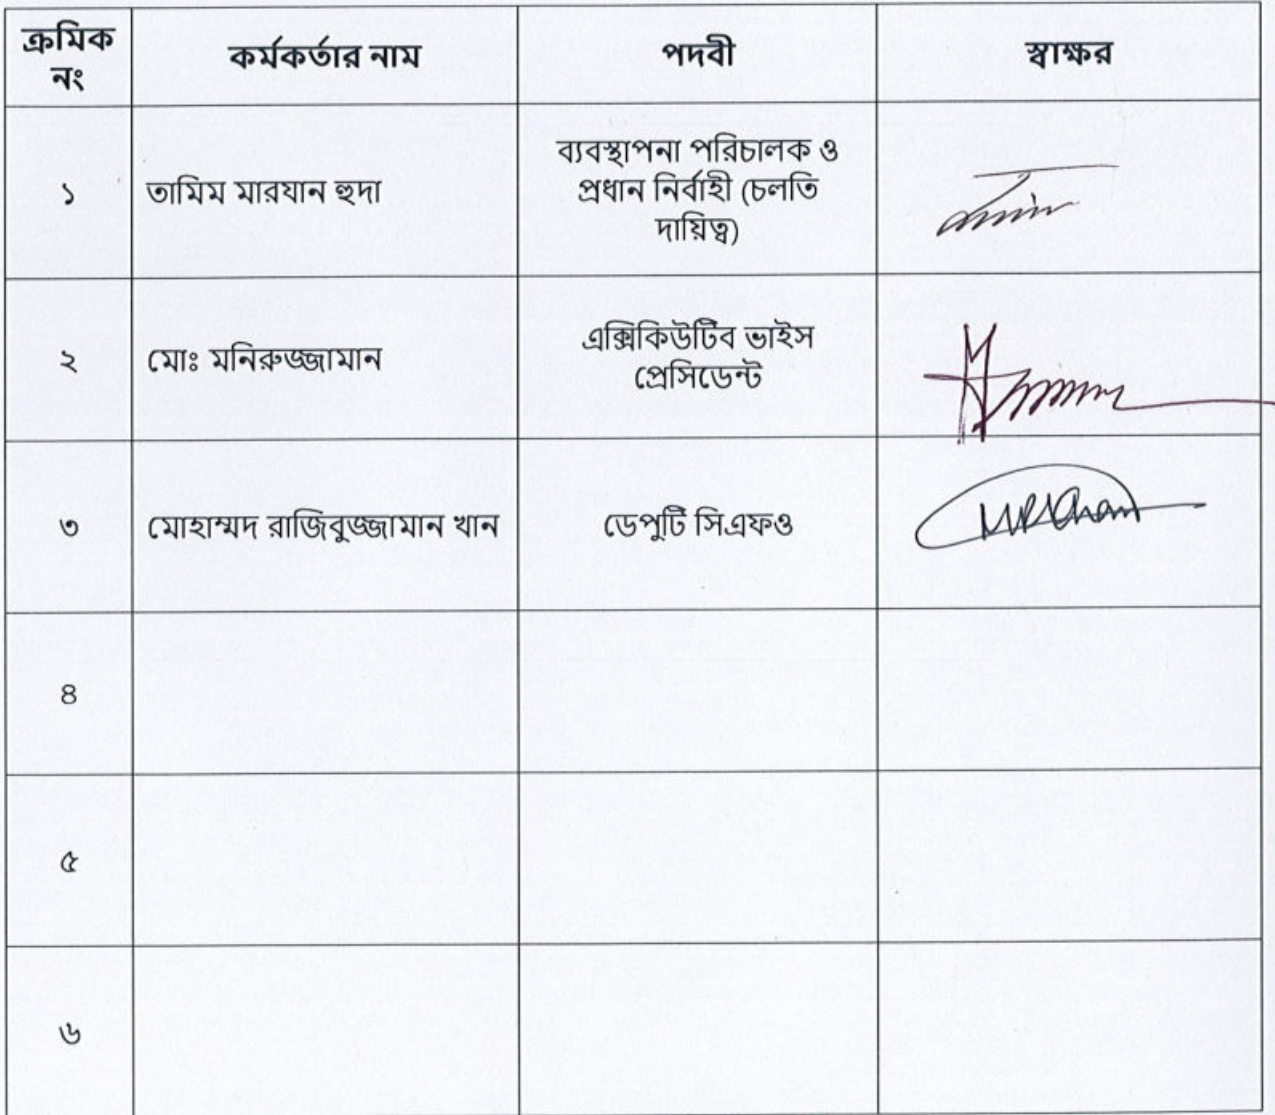 ক্রমিক নং কর্মকর্তার নাম পদবী স্বাক্ষর
১ তামিম মারযান হুদা ব্যবস্থাপনা পরিচালক ও
প্রধান নির্বাহী (চলতি
দায়িত্ব)
২ মোঃ মনিরুজ্জামান এক্সিকিউটিব ভাইস
প্রেসিডেন্ট
৩ মোহাম্মদ রাজিবুজ্জামান খান ডেপুটি সিএফও
৪
৫
৬